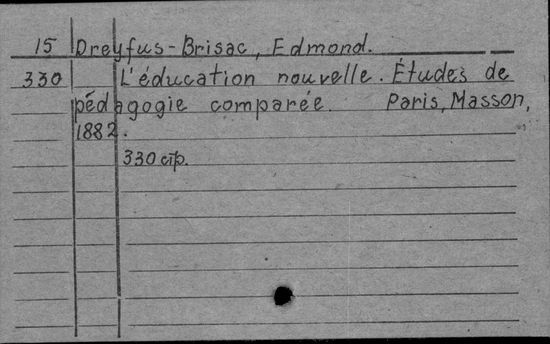 15 Dreyfus-Brisac, Edmond.
330 L'éducation nouvelle. Études de
pédagogie comparée. Paris, Masson,
1882.
330 стр.